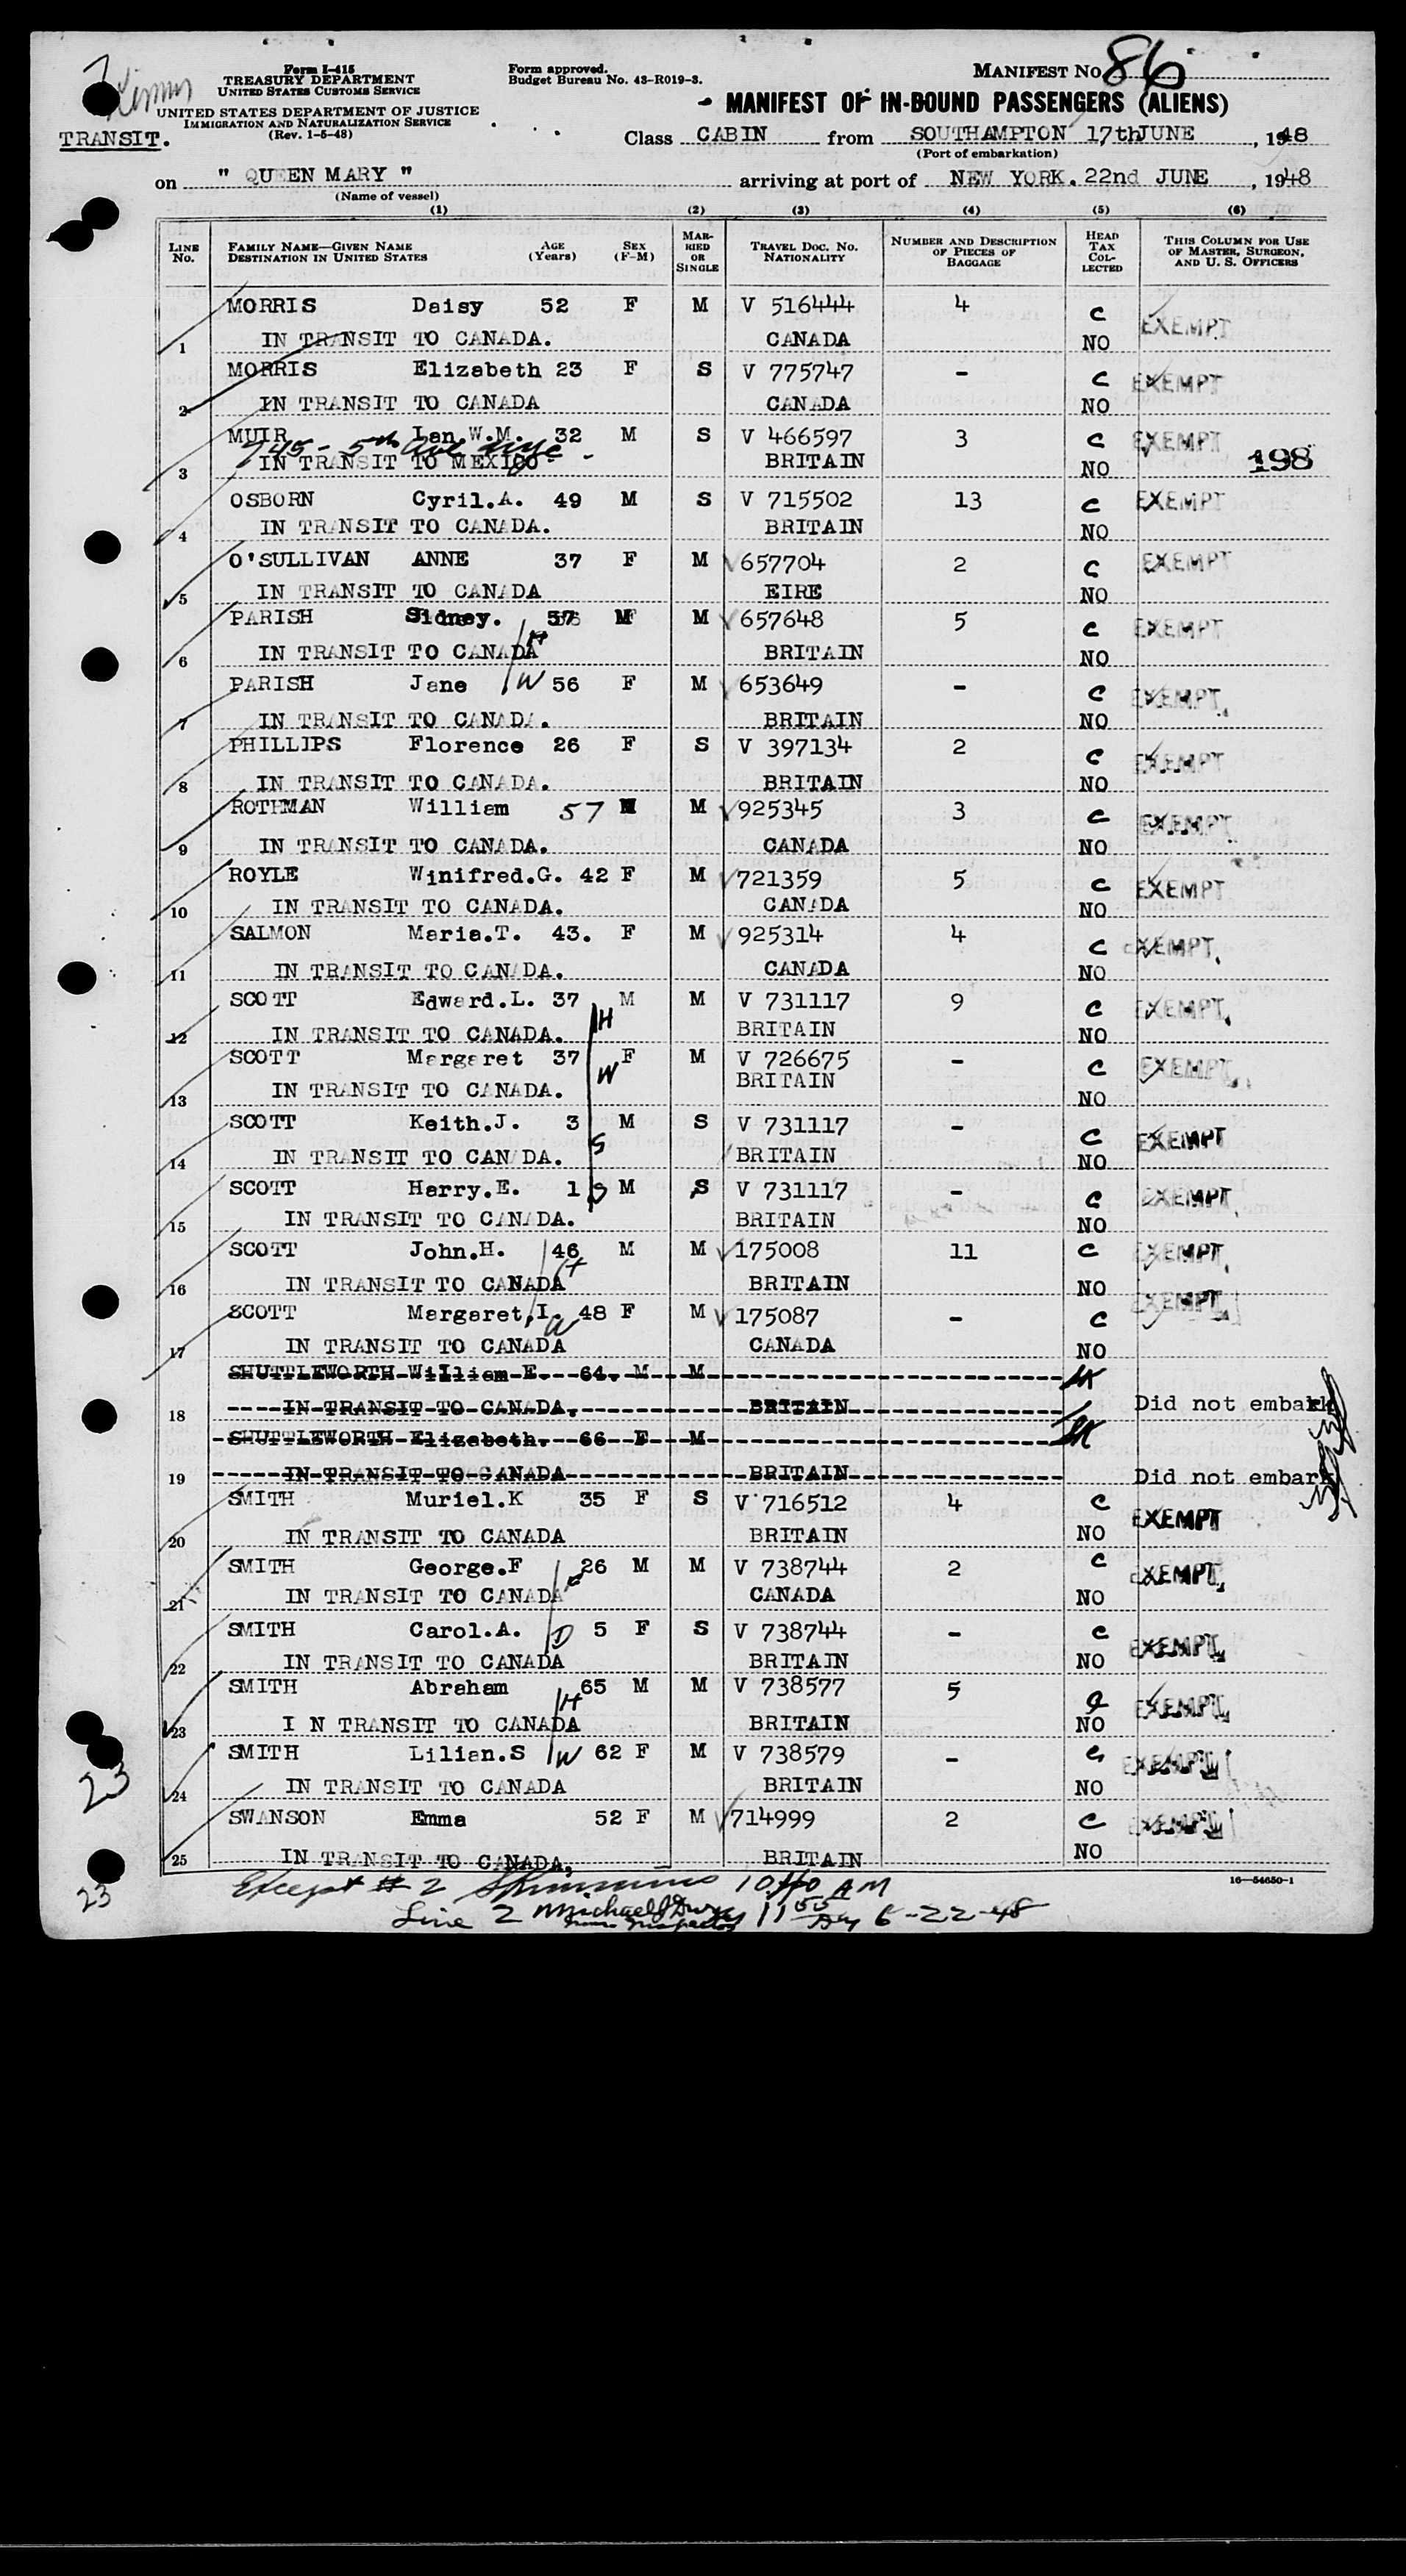 7
TRANSIT.
Form I-415
TREASURY DEPARTMENT
UNITED STATES CUSTOMS SERVICE
UNITED STATES DEPARTMENT OF JUSTICE
IMMIGRATION AND NATURALIZATION SERVICE
(Rev. 1-5-48)
Form approved.
Budget Bureau No. 43-R019-3.
MANIFEST No. 86
MANIFEST OF IN-BOUND PASSENGERS (ALIENS)
Class CABIN from SOUTHAMPTON 17thJUNE, 1948
(Port of embarkation)
on " QUEEN MARY " arriving at port of NEW YORK. 22nd JUNE, 1948
(Name of vessel)
(1) (2) (3) (4) (5) (6)
LINE No. FAMILY NAME—GIVEN NAME DESTINATION IN UNITED STATES AGE (Years) SEX (F-M) MARRIED OR SINGLE TRAVEL DOC. NO. NATIONALITY NUMBER AND DESCRIPTION OF PIECES OF BAGGAGE HEAD TAX COLLECTED THIS COLUMN FOR USE OF MASTER, SURGEON, AND U. S. OFFICERS
MORRIS Daisy 52 F M V 516444 4 C EXEMPT
1 IN TRANSIT TO CANADA. CANADA NO
MORRIS Elizabeth 23 F S V 775747 - C EXEMPT
2 IN TRANSIT TO CANADA CANADA NO
MUIR Ian W.M. 32 M S V 466597 3 C EXEMPT
745 - 5th Ave NYC -
3 IN TRANSIT TO MEXICO BRITAIN NO 198
OSBORN Cyril.A. 49 M S V 715502 13 C EXEMPT
4 IN TRANSIT TO CANADA. BRITAIN NO
O'SULLIVAN ANNE 37 F M V 657704 2 C EXEMPT
5 IN TRANSIT TO CANADA EIRE NO
PARISH Sidney. 57 M M V 657648 5 C EXEMPT
6 IN TRANSIT TO CANADA H BRITAIN NO
PARISH Jane W 56 F M V 653649 - C EXEMPT
7 IN TRANSIT TO CANADA. BRITAIN NO
PHILLIPS Florence 26 F S V 397134 2 C EXEMPT
8 IN TRANSIT TO CANADA. BRITAIN NO
ROTHMAN William 57 M M V 925345 3 C EXEMPT
9 IN TRANSIT TO CANADA. CANADA NO
ROYLE Winifred.G. 42 F M V 721359 5 C EXEMPT
10 IN TRANSIT TO CANADA. CANADA NO
SALMON Marie.T. 43. F M V 925314 4 C EXEMPT
11 IN TRANSIT TO CANADA. CANADA NO
SCOTT Edward.L. 37 H M M V 731117 9 C EXEMPT
12 IN TRANSIT TO CANADA. BRITAIN NO
SCOTT Margaret 37 W F M V 726675 - C EXEMPT
13 IN TRANSIT TO CANADA. BRITAIN NO
SCOTT Keith.J. 3 S M S V 731117 - C EXEMPT
14 IN TRANSIT TO CANADA. BRITAIN NO
SCOTT Harry.E. 1 S M S V 731117 - C EXEMPT
15 IN TRANSIT TO CANADA. BRITAIN NO
SCOTT John.H. 46 H M M V 175008 11 C EXEMPT
16 IN TRANSIT TO CANADA BRITAIN NO
SCOTT Margaret,I. W 48 F M V 175087 - C EXEMPT
17 IN TRANSIT TO CANADA CANADA NO
SHUTTLEWORTH William E. 64. M M
18 IN TRANSIT TO CANADA. BRITAIN Did not embark
SHUTTLEWORTH Elizabeth. 66 F M
19 IN TRANSIT TO CANADA BRITAIN Did not embark
SMITH Muriel.K 35 F S V 716512 4 C EXEMPT
20 IN TRANSIT TO CANADA BRITAIN NO
SMITH George.F 26 F M M V 738744 2 C EXEMPT
21 IN TRANSIT TO CANADA CANADA NO
SMITH Carol.A. D 5 F S V 738744 - C EXEMPT
22 IN TRANSIT TO CANADA BRITAIN NO
SMITH Abraham H 65 M M V 738577 5 C EXEMPT
23 I N TRANSIT TO CANADA BRITAIN NO
SMITH Lilian.S W 62 F M V 738579 - C EXEMPT
24 IN TRANSIT TO CANADA BRITAIN NO
SWANSON Emma 52 F M V 714999 2 C EXEMPT
25 IN TRANSIT TO CANADA, BRITAIN NO
23
23
16—54650-1
Except # 2 10 40 AM
Line 2 Michael 11 55 AM 6-22-48